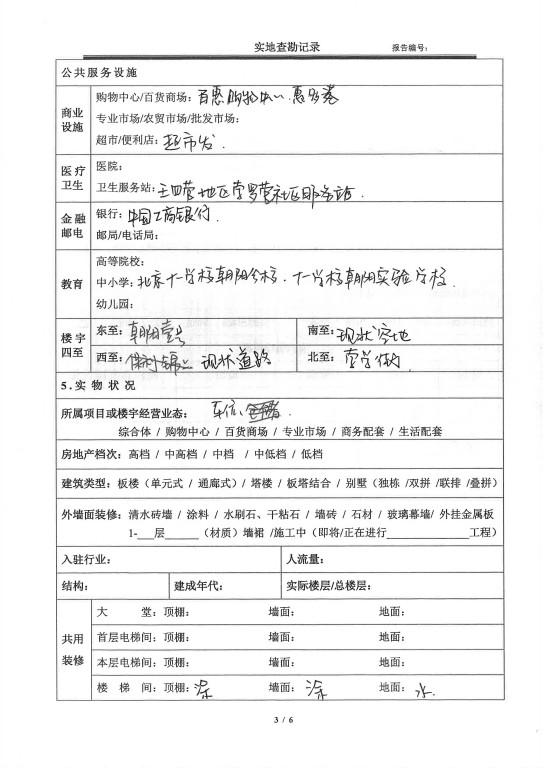 实地查勘记录 报告编号:
公共服务设施
商业设施
购物中心/百货商场: 百惠购物中心、惠多港
专业市场/农贸市场/批发市场:
超市/便利店: 超市发.
医疗卫生
医院:
卫生服务站: 王四营地区官罗营社区服务站.
金融邮电
银行: 中国工商银行.
邮局/电话局:
教育
高等院校:
中小学: 北京十一学校朝阳分校. 十一学校朝阳实验学校.
幼儿园:
楼宇四至
东至: 朝阳壹号 南至: 现状空地
西至: 现状道路 北至:
5.实物状况
所属项目或楼宇经营业态: 车位、
综合体 / 购物中心 / 百货商场 / 专业市场 / 商务配套 / 生活配套
房地产档次: 高档 / 中高档 / 中档 / 中低档 / 低档
建筑类型: 板楼（单元式 / 通廊式）/ 塔楼 / 板塔结合 / 别墅（独栋 /双拼 /联排 /叠拼）
外墙面装修: 清水砖墙 / 涂料 / 水刷石、干粘石 / 墙砖 / 石材 / 玻璃幕墙/ 外挂金属板
1-___层______（材质）墙裙 /施工中（即将/正在进行______________工程）
入驻行业: 人流量:
结构: 建成年代: 实际楼层/总楼层:
共用装修
大 堂: 顶棚: 墙面: 地面:
首层电梯间: 顶棚: 墙面: 地面:
本层电梯间: 顶棚: 墙面: 地面:
楼 梯 间: 顶棚: 涂 墙面: 涂 地面: 水.
3 / 6